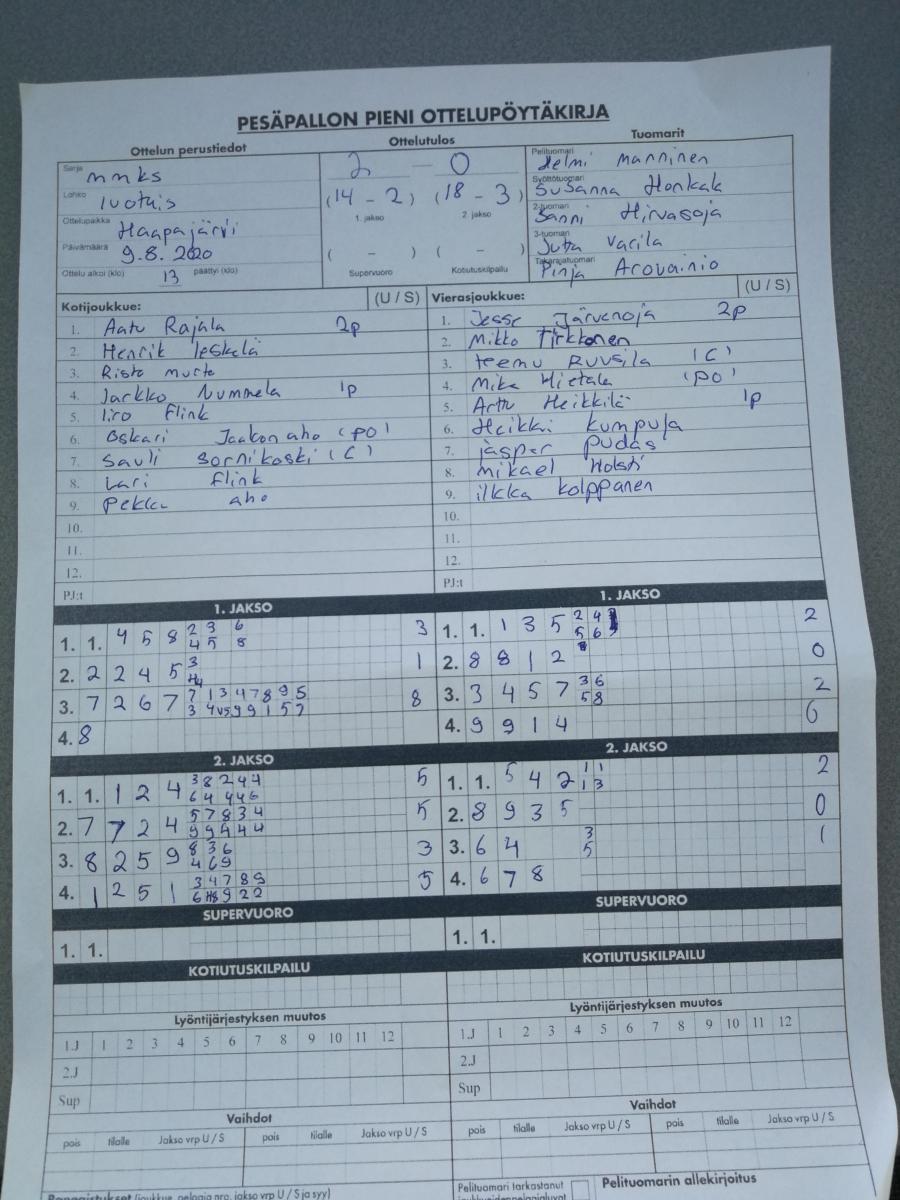 PESÄPALLON PIENI OTTELUPÖYTÄKIRJA
Ottelun perustiedot Ottelutulos Tuomarit
Sarja mnks
Lohko
Ottelupaikka Haapajärvi
Päivämäärä 9.8. 2020
Ottelu alkoi (klo) 13 päättyi (klo)
2 - 0
(14 - 2) (18 - 3)
1. jakso 2. jakso
( - ) ( - )
Supervuoro Kotiutuskilpailu
Pelituomari Helmi Manninen
Syöttötuomari Susanna Honkala
2-tuomari Sanni Hirvasoja
3-tuomari Jutta Varila
Takarajatuomari Pinja Arovainio
Kotijoukkue: (U / S)
1. Aatu Rajala 2p
2. Henrik leskelä
3. Risto murto
4. Jarkko Nummela 1p
5. Iiro Flink
6. Oskari Jaakonaho (PO)
7. Sauli Sornikoski (C)
8. Lari Flink
9. Pekka aho
10.
11.
12.
PJ:t
Vierasjoukkue: (U / S)
1. Jesse Järvenoja 2p
2. Mikko Tirkkonen
3. teemu Ruusila (C)
4. Mika Hietala (PO)
5. Arttu Heikkilä 1p
6. Heikki kumpula
7. jasper pudas
8. mikael Holsti
9. ilkka kolppanen
10.
11.
12.
PJ:t
1. JAKSO
1. 1. 4 5 8 2 3 6 3
4 5 8
2. 2 2 4 5 3 1
3. 7 2 6 7 7 1 3 4 7 8 9 5 8
4. 8
1. JAKSO
1. 1. 1 3 5 2 4 2
5 6
2. 8 8 1 2 0
3. 3 4 5 7 3 6 2
5 8
4. 9 9 1 4 0
2. JAKSO
1. 1. 1 2 4 3 8 2 4 4 5
6 4 4 4 6
2. 7 7 2 4 5 7 8 3 4 5
9 9 4 4 4
3. 8 2 5 9 8 3 6 3
4 6 9
4. 1 2 5 1 3 4 7 8 9 5
2. JAKSO
1. 1. 5 4 2 1 1 2
1 3
2. 8 9 3 5 0
3. 6 4 3 1
5
4. 6 7 8
SUPERVUORO
1. 1.
SUPERVUORO
1. 1.
KOTIUTUSKILPAILU
KOTIUTUSKILPAILU
Lyöntijärjestyksen muutos
1.J 1 2 3 4 5 6 7 8 9 10 11 12
2.J
Sup
Lyöntijärjestyksen muutos
1.J 1 2 3 4 5 6 7 8 9 10 11 12
2.J
Sup
Vaihdot
pois tilalle Jakso vrp U / S pois tilalle Jakso vrp U / S
Vaihdot
pois tilalle Jakso vrp U / S pois tilalle Jakso vrp U / S
Rangaistukset (joukkue, pelaaja nro, jakso vrp U / S ja syy)
Pelituomari tarkastanut
Pelituomarin allekirjoitus